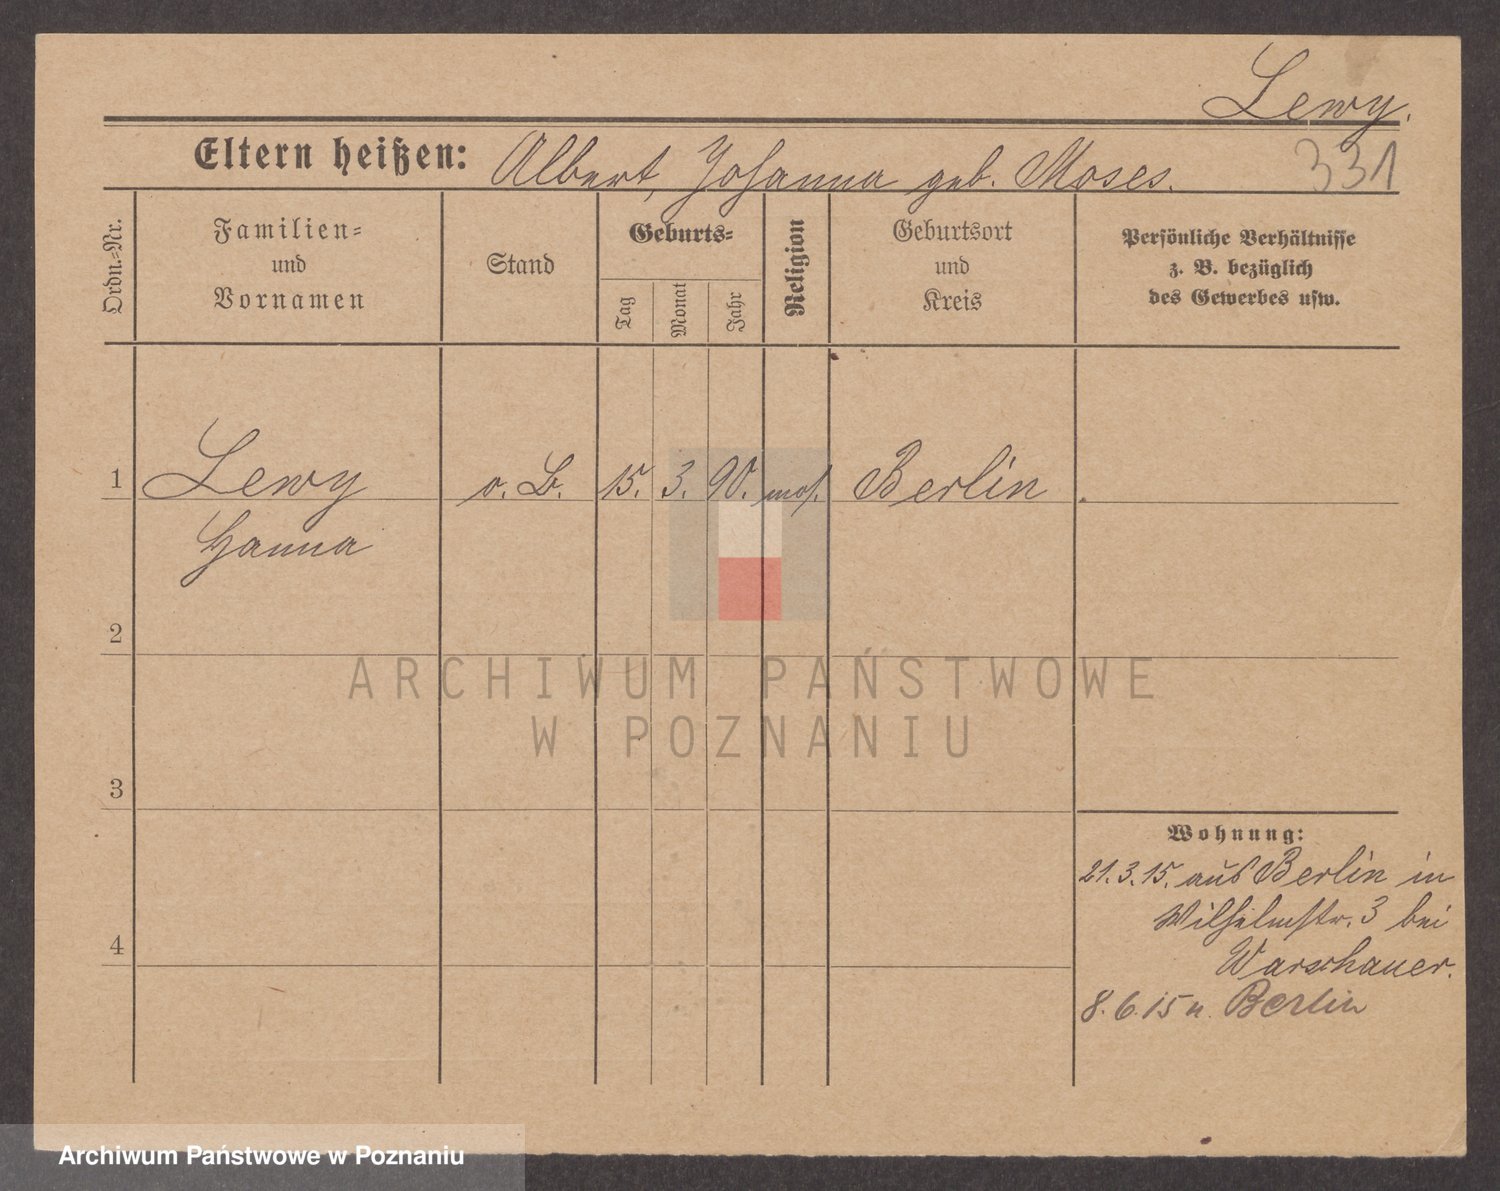 Lewy.
Eltern heißen: Albert, Johanna geb. Moses.
331
Ordn.=Nr.
Familien=
und
Vornamen
Stand
Geburts=
Tag
Monat
Jahr
Religion
Geburtsort
und
Kreis
Persönliche Verhältnisse
z. B. bezüglich
des Gewerbes usw.
1 Lewy o. B. 15. 3. 90. mos. Berlin
Hanna
2
ARCHIWUM PAŃSTWOWE
W POZNANIU
3
Wohnung:
21.3.15. aus Berlin in
Wilhelmstr. 3 bei
4
Warschauer.
8.6.15 n. Berlin
Archiwum Państwowe w Poznaniu